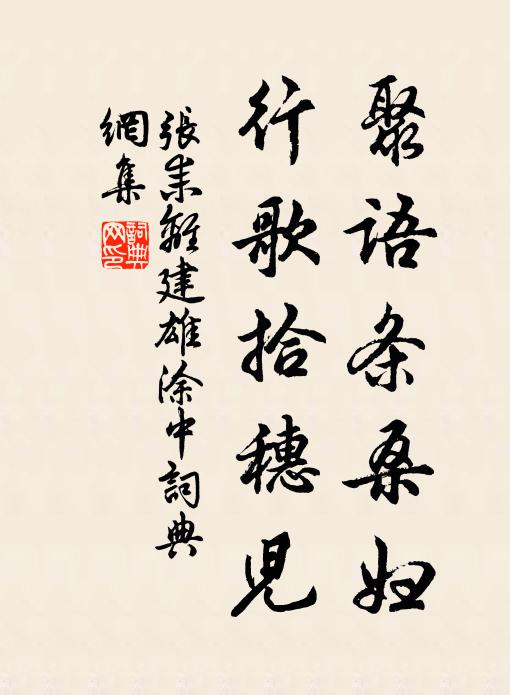 聚语条桑妇
行歌拾穗儿
張耒離建雄涂中詞典
網集
詞典
网印